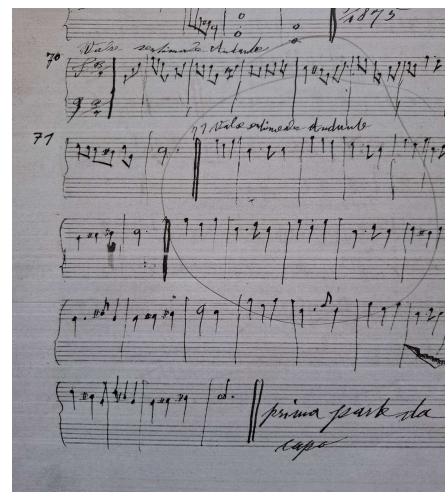 1875
70 Valse sentimada Andante
71 71 Valse sentimada Andante
prima parte da
capo